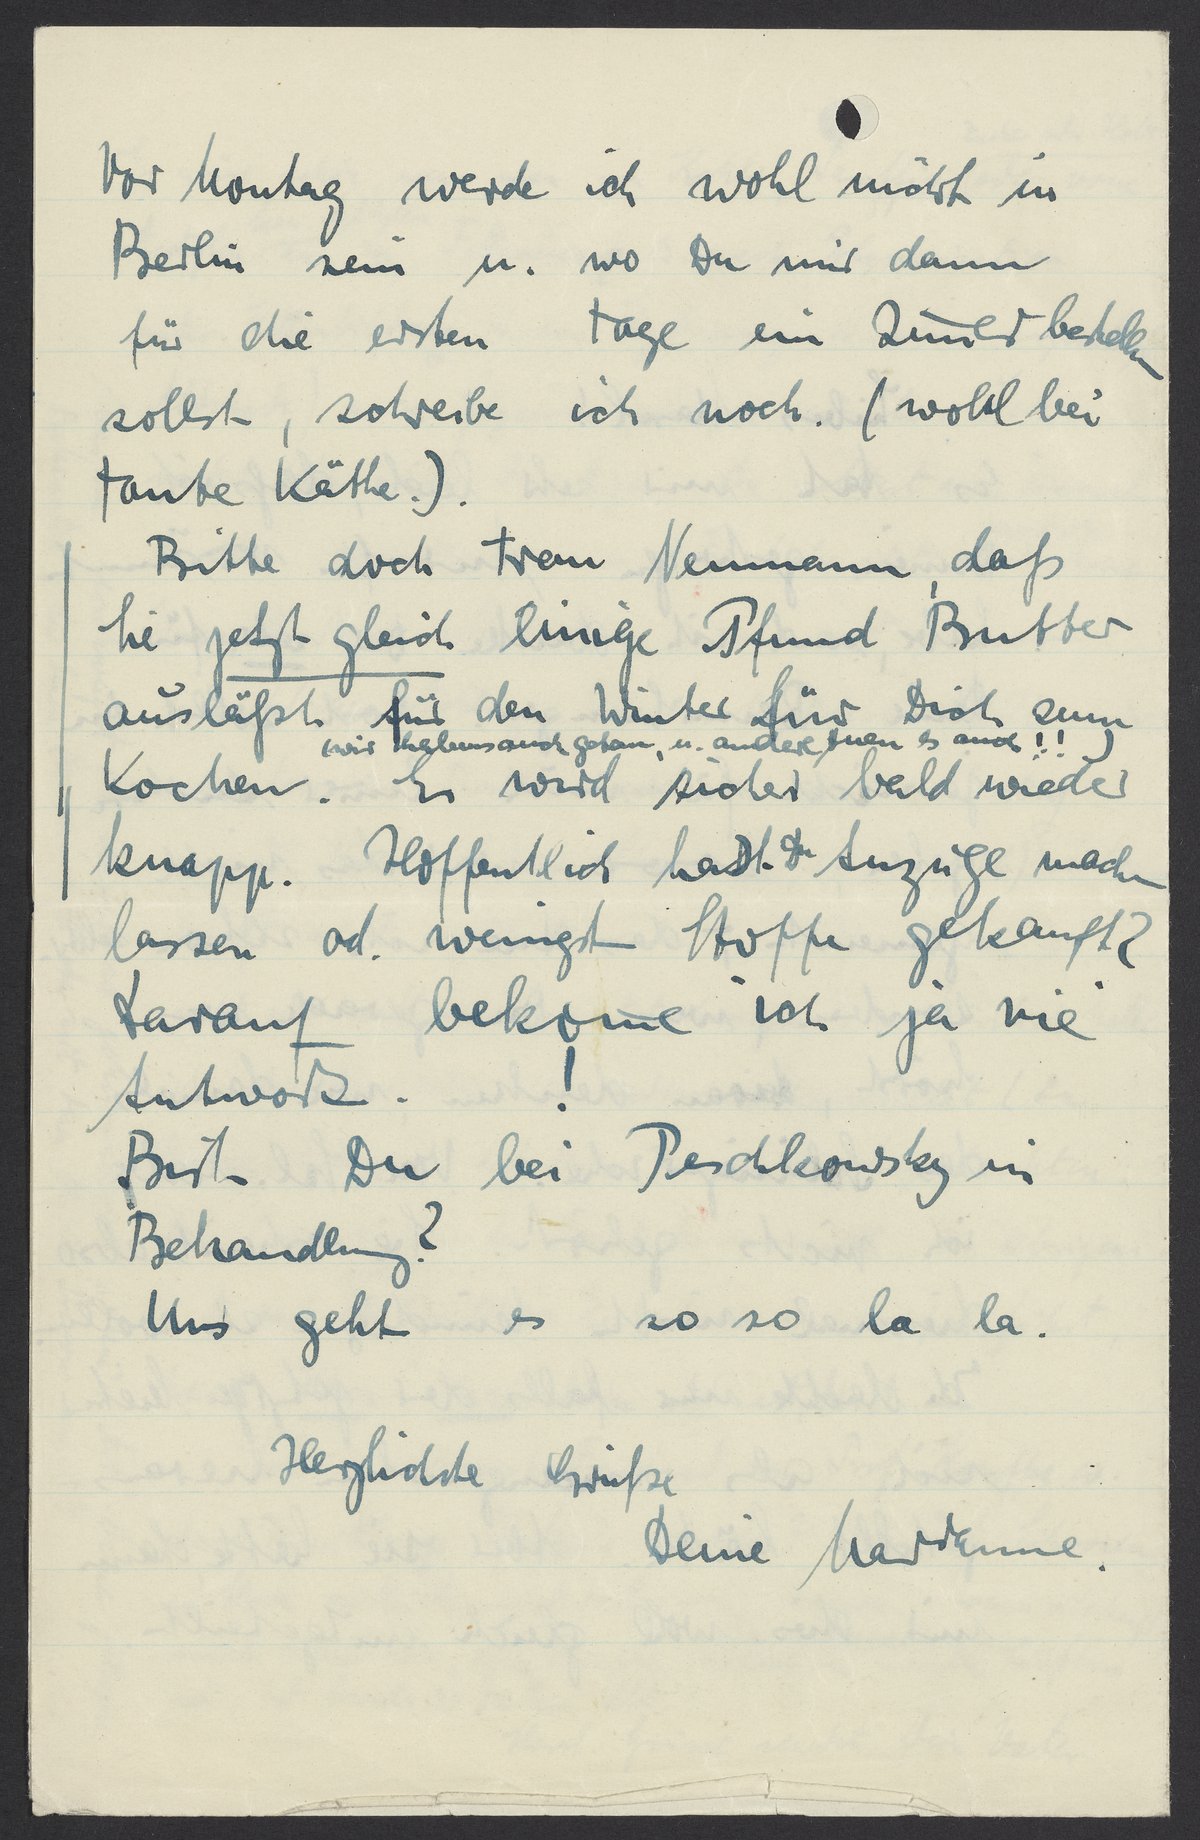 Vor Montag werde ich wohl nicht in
Berlin sein u. wo Du mir dann
für die ersten Tage ein Zim̅er bestellen
sollst, schreibe ich noch. (wohl bei
Tante Käthe.).
Bitte doch Frau Neumann, daß
sie jetzt gleich einige Pfund Butter
ausläßt für den Winter für Dich zum
(wir habens auch getan, u. andere tuen es auch!!)
Kochen. Es wird sicher bald wieder
knapp. Hoffentlich hast Du Anzüge machen
lassen od. wenigst Stoffe gekauft?
Darauf bekom̅e ich ja nie
Antwort. !
Bist Du bei Peschkowsky in
Behandlung?
Uns geht es so so la la.
Herzlichste Grüße
Deine Marianne.